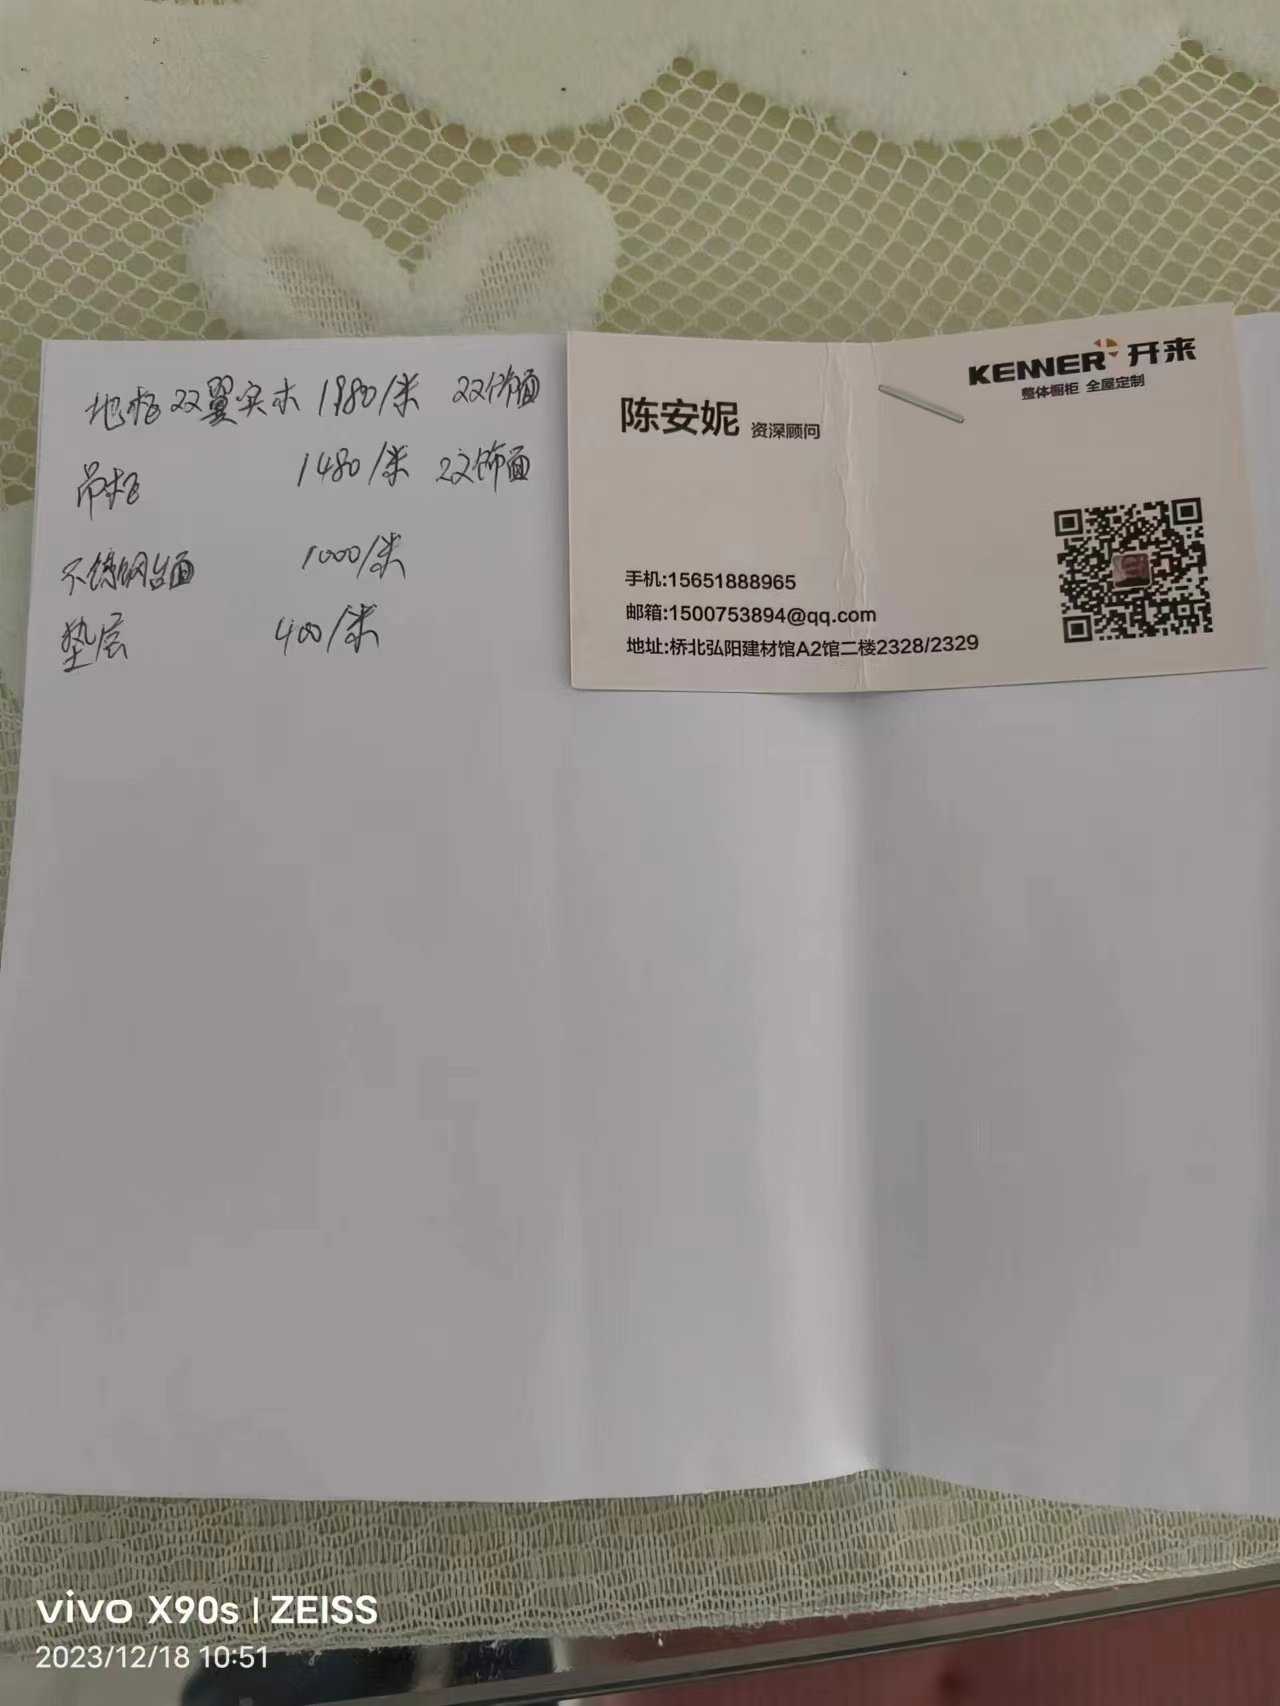 地柜双翼实木 1980/米 双饰面
吊柜 1480/米 双饰面
不锈钢台面 1000/米
垫层 400/米
KENNER 开来
整体橱柜 全屋定制
陈安妮 资深顾问
手机:15651888965
邮箱:1500753894@qq.com
地址:桥北弘阳建材馆A2馆二楼2328/2329
vivo X90s | ZEISS
2023/12/18 10:51